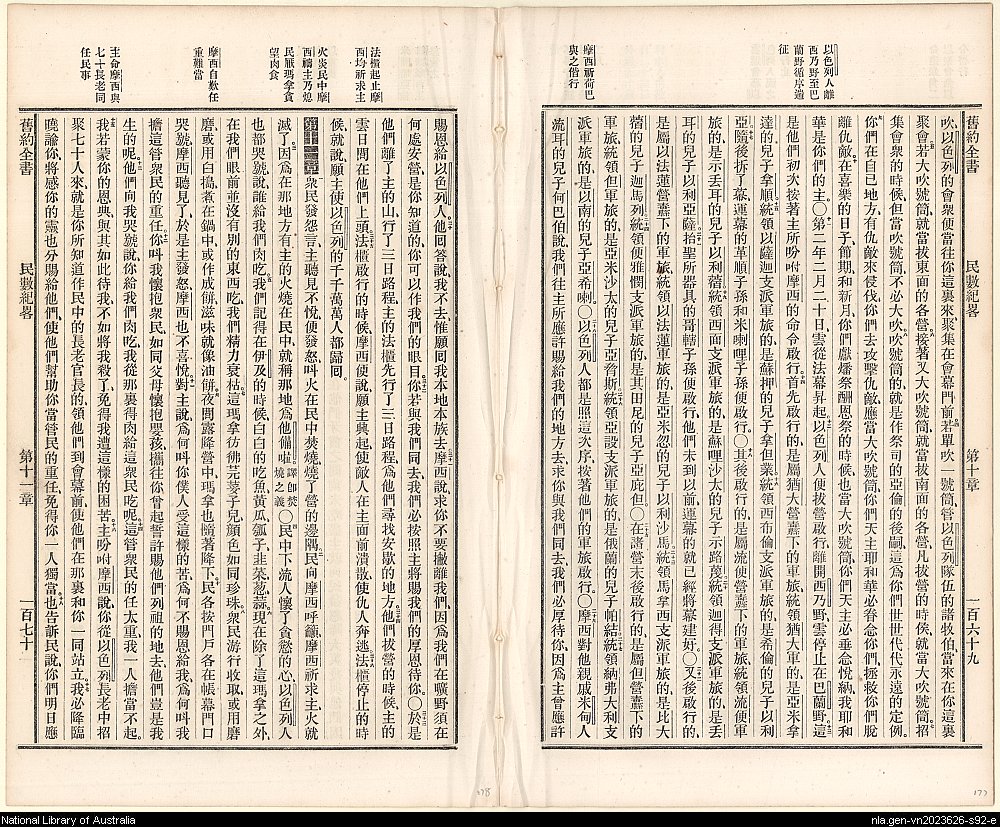 以色列人離
西乃野至巴
蘭野循序遄
征
摩西祈荷巴
與之偕行
舊約全書
民數紀畧
第十章
一百六十九
吹、以色列的會衆便當往你這裏來聚集在會幕門前、若單吹一號筒、管以色列隊伍的諸牧伯當來在你這裏
聚會、若大吹號筒、就當拔東面的各營、接著又大吹號筒、就當拔南面的各營、凡拔營的時侯、就當大吹號筒、招
集會衆的時候、但當吹號筒、不必大吹號筒、吹號筒的、就是作祭司的亞倫的後嗣、這爲你們世世代代永遠的定例、
你們在自己地方、有仇敵來侵伐、你們去攻擊仇敵、應當大吹號筒、你們天主耶和華必眷念你們、拯救你們脫
離仇敵、在喜樂的日子、節期、和新月、你們獻燔祭酬恩祭的時候、也當大吹號筒、你們天主必垂念悅納、我耶和
華是你們的主、〇第二年二月二十日、雲從法幕昇起、以色列人便拔營啟行、離開西乃野、雲停止在巴蘭野、這
是他們初次按著主所吩咐摩西的命令啟行、首先啟行的、是屬猶大營纛下的軍旅、統領猶大軍的、是亞米拿
達的兒子拿順、統領以薩迦支派軍旅的、是蘇押的兒子拿但業、統領西布倫支派軍旅的、是希倫的兒子以利
亞、隨後拆了幕、運幕的革順子孫和米喇哩子孫便啟行、〇其後啟行的、是屬流便營纛下的軍旅、統領流便軍
旅的、是示丟耳的兒子以利蓿、統領西面支派軍旅的、是蘇哩沙太的兒子示路蔑、統領迦得支派軍旅的、是丟
耳的兒子以利亞薩、抬聖所器具的哥轄子孫便啟行、他們未到以前、運幕的就已經將幕建好、〇又後啟行的、
是屬以法蓮營纛下的軍旅、統領以法蓮軍旅的、是亞米忽的兒子以利沙馬、統領馬拿西支派軍旅的、是比大
蓿的兒子迦馬列、統領便雅憫支派軍旅的、是其田尼的兒子亞庇但、〇在諸營末後啟行的、是屬但營纛下的
軍旅、統領但軍旅的、是亞米沙太的兒子亞脊斯、統領亞設支派軍旅的、是俄蘭的兒子帕結、統領納弗大利支
派軍旅的、是以南的兒子亞希喇、〇以色列人都是照這次序、按著他們的軍旅啟行、〇摩西對他親戚米甸人
流耳的兒子何巴伯說、我們往主所應許賜給我們的地方去、求你與我們同去、我們必厚待你、因爲主曾應許
法櫃起止摩
西均祈求主
火炎民中摩
西禱主乃熄
民厭瑪拿貪
望肉食
摩西自歎任
重難當
主命摩西與
七十長老同
任民事
賜恩給以色列人、他回答說、我不去、惟願回我本地本族去、摩西說、求你不要撇離我們、因爲我們在曠野、須在
何處安營、是你知道的、你可以作我們的眼目、你若與我們同去、我們必按照主將賜我們的厚恩待你、〇於是
他們離了主的山、行了三日路程、主的法櫃先行了三日路程、爲他們尋找安歇的地方、他們拔營的時候、主的
雲日間在他們上頭、法櫃啟行的時候、摩西便說、願主興起、使敵人在主面前潰散、使仇人奔逃、法櫃停止的時
候、就說、願主使以色列的千千萬萬人都歸回、
第十一章 衆民發怨言、主聽見不悅、便發怒、叫火在民中焚燒、燒了營的邊隅、民向摩西呼籲、摩西祈求主、火就
滅了、因爲在那地方有主的火燒在民中、就稱那地爲他備喇、譯卽焚燒之義〇民中下流人懷了貪慾的心、以色列人
也都哭號說、誰給我們肉吃、我們記得在伊及的時候、白白的吃魚、黃瓜、瓠子、韭菜、葱、蒜、現在除了這瑪拿之外、
在我們眼前並沒有別的東西吃、我們精力衰枯、這瑪拿彷彿芫荽子兒、顏色如同珍珠、衆民游行收取、或用磨
磨、或用臼搗、煮在鍋中、或作成餅、滋味就像油餅、夜間露降營中、瑪拿也隨著降下、民各按門戶、各在帳幕門口
哭號、摩西聽見了、於是主發怒、摩西也不喜悅、對主說、爲何叫你僕人受這樣的苦、爲何不賜恩給我、爲何叫我
擔這管衆民的重任、你叫我懷抱衆民、如同父母懷抱嬰孩、攜往你曾起誓許賜他們列祖的地去、他們豈是我
生的呢、他們向我哭號說、你給我們肉吃、我從那裏得肉給這衆民吃呢、這管衆民的任太重、我一人擔當不起、
我若蒙你的恩典、與其如此待我、不如將我殺了、免得我遭這樣的困苦、主吩咐摩西說、你從以色列長老中招
聚七十人來、就是你所知道作民中的長老官長的、領他們到會幕前、使他們在那裏和你一同站立、我必降臨
曉諭你、將感你的靈也分賜給他們、使他們幫助你當管民的重任、免得你一人獨當、也告訴民說、你們明日應
舊約全書
民數紀畧
第十一章
一百七十
178
177
National Library of Australia
nla.gen-vn2023626-s92-e